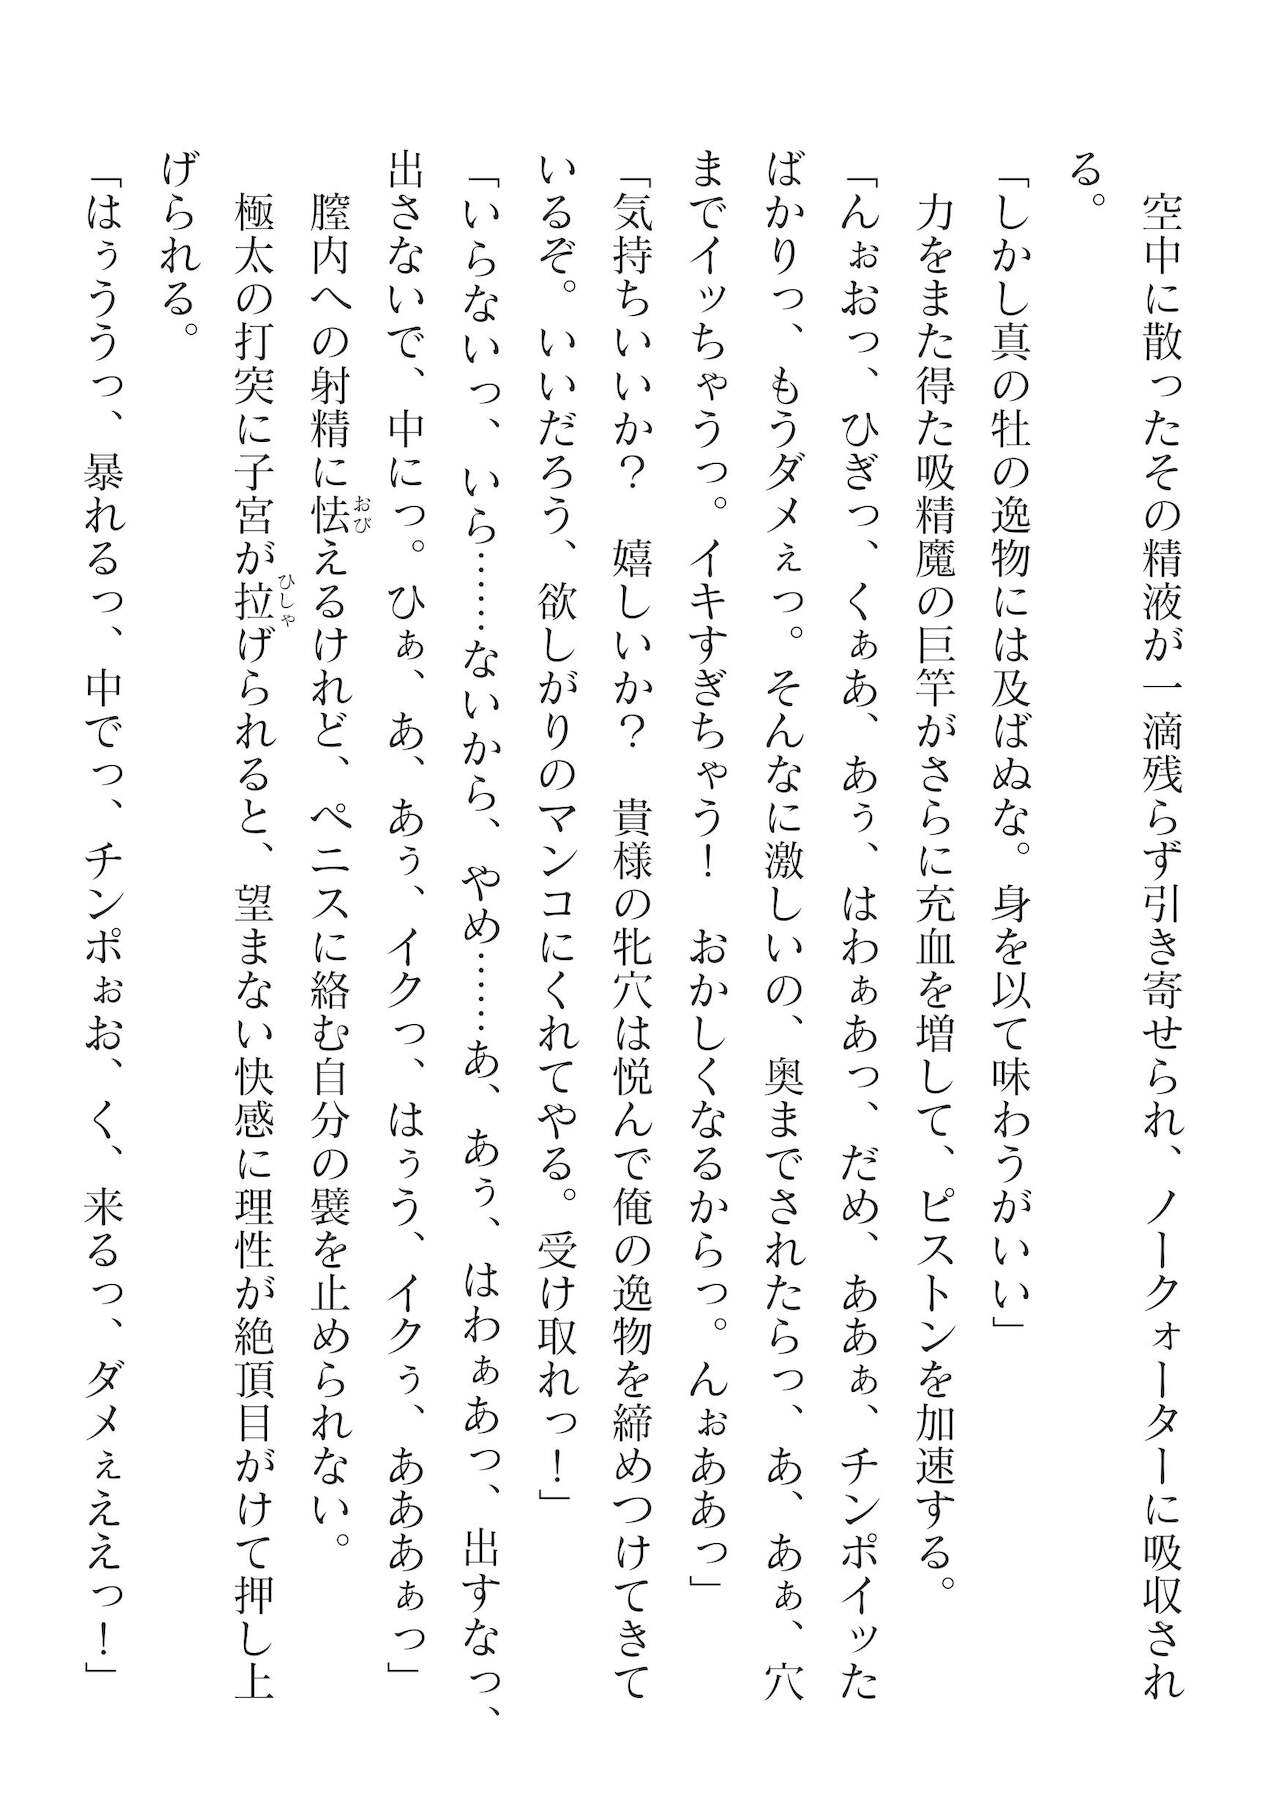 空中に散ったその精液が一滴残らず引き寄せられ、ノークォーターに吸収され
る。
「しかし真の牡の逸物には及ばぬな。身を以て味わうがいい」
力をまた得た吸精魔の巨竿がさらに充血を増して、ピストンを加速する。
「んぉおっ、ひぎっ、くぁあ、あぅ、はわぁあっ、だめ、ああぁ、チンポイッた
ばかりっ、もうダメぇっ。そんなに激しいの、奥までされたらっ、あ、あぁ、穴
までイッちゃうっ。イキすぎちゃう！　おかしくなるからっ。んぉああっ」
「気持ちいいか？　嬉しいか？　貴様の牝穴は悦んで俺の逸物を締めつけてきて
いるぞ。いいだろう、欲しがりのマンコにくれてやる。受け取れっ！」
「いらないっ、いら……ないから、やめ……あ、あぅ、はわぁあっ、出すなっ、
出さないで、中にっ。ひぁ、あ、あぅ、イクっ、はぅう、イクぅ、あああぁっ」
おび
膣内への射精に怯えるけれど、ペニスに絡む自分の襞を止められない。
ひしゃ
極太の打突に子宮が拉げられると、望まない快感に理性が絶頂目がけて押し上
げられる。
「はぅううっ、暴れるっ、中でっ、チンポぉお、く、来るっ、ダメぇええっ！」